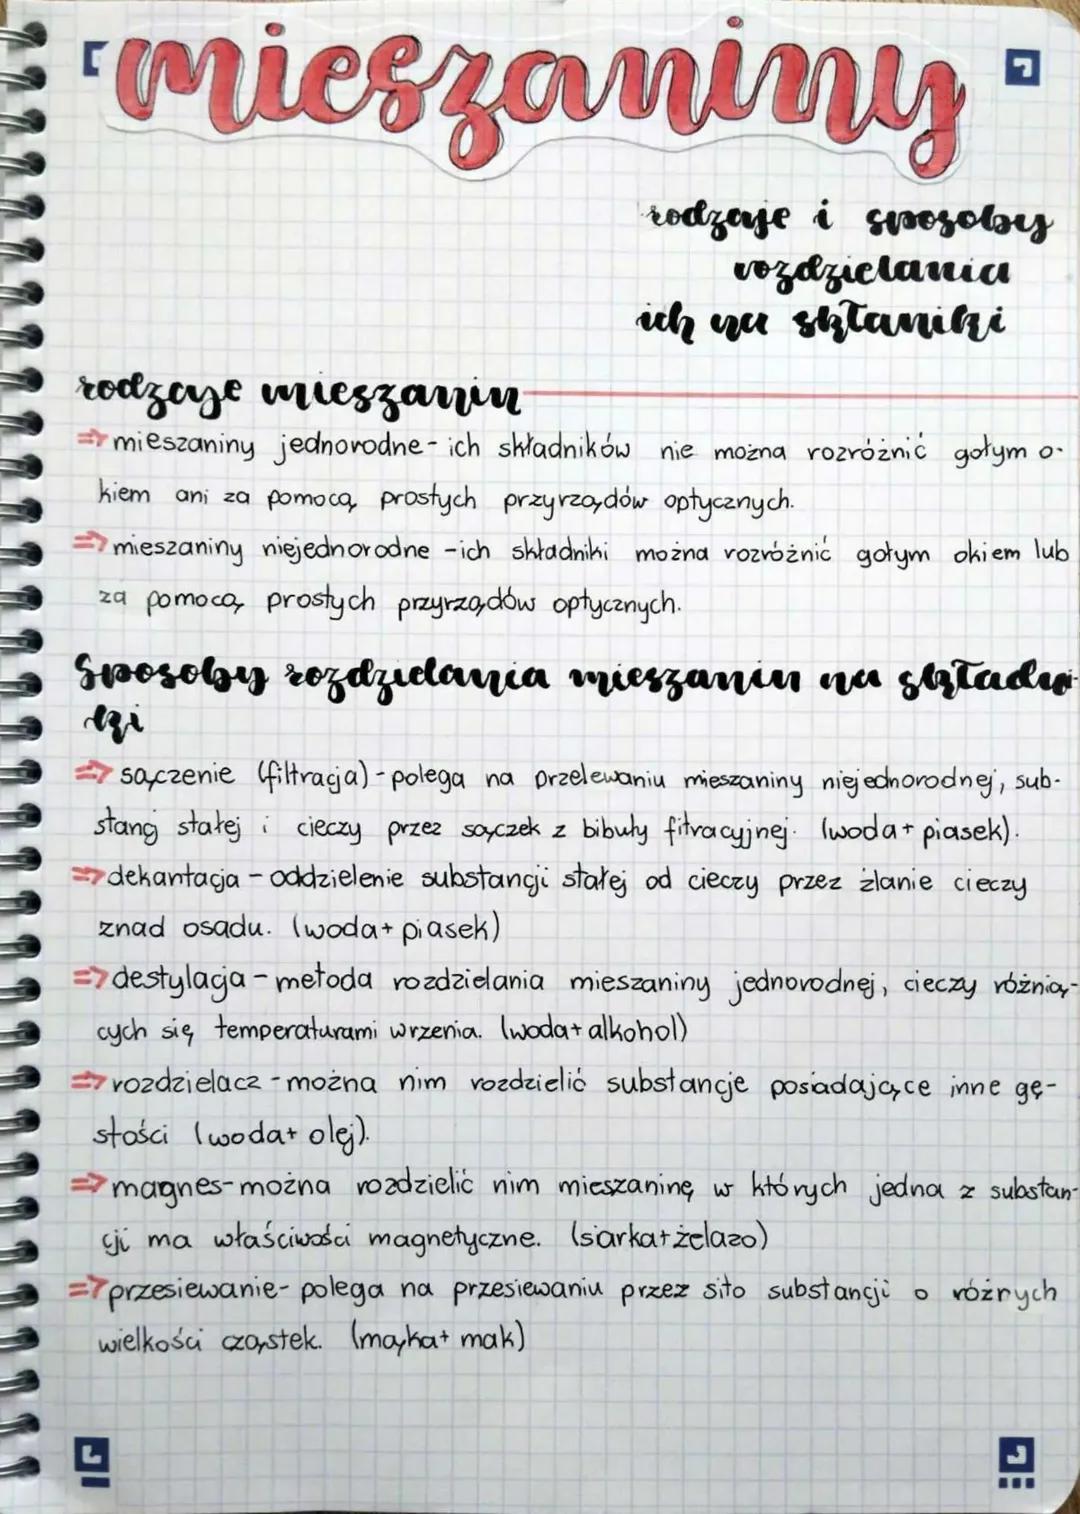 mieszaniny
rodzaje i sposoby
rozdzielania
ich na skłaniki
rodzaje mieszanin
⇒ mieszaniny jednorodne - ich składników nie można rozróżnić gołym o-
kiem ani za pomocą prostych przyrządów optycznych.
⇒ mieszaniny niejednorodne - ich składniki można rozróżnić gołym okiem lub
za pomocą prostych przyrządów optycznych.
Sposoby rozdzielania mieszanin na składni-
ki
⇒ sączenie (filtracja) - polega na przelewaniu mieszaniny niejednorodnej, sub-
stancj stałej i cieczy przez sączek z bibuły fitracyjnej. (woda + piasek).
⇒ dekantacja - oddzielenie substancji stałej od cieczy przez żlanie cieczy
znad osadu. (woda + piasek)
⇒ destylacja - metoda rozdzielania mieszaniny jednorodnej, cieczy różnią-
cych się temperaturami wrzenia. (woda + alkohol)
⇒ rozdzielacz - można nim rozdzielić substancje posiadające inne gę-
stości (woda + olej).
⇒ magnes - można rozdzielić nim mieszaninę w których jedna z substan-
cji ma właściwości magnetyczne. (siarka + żelazo)
⇒ przesiewanie - polega na przesiewaniu przez sito substancji o różnych
wielkości cząstek. (mąka + mak)